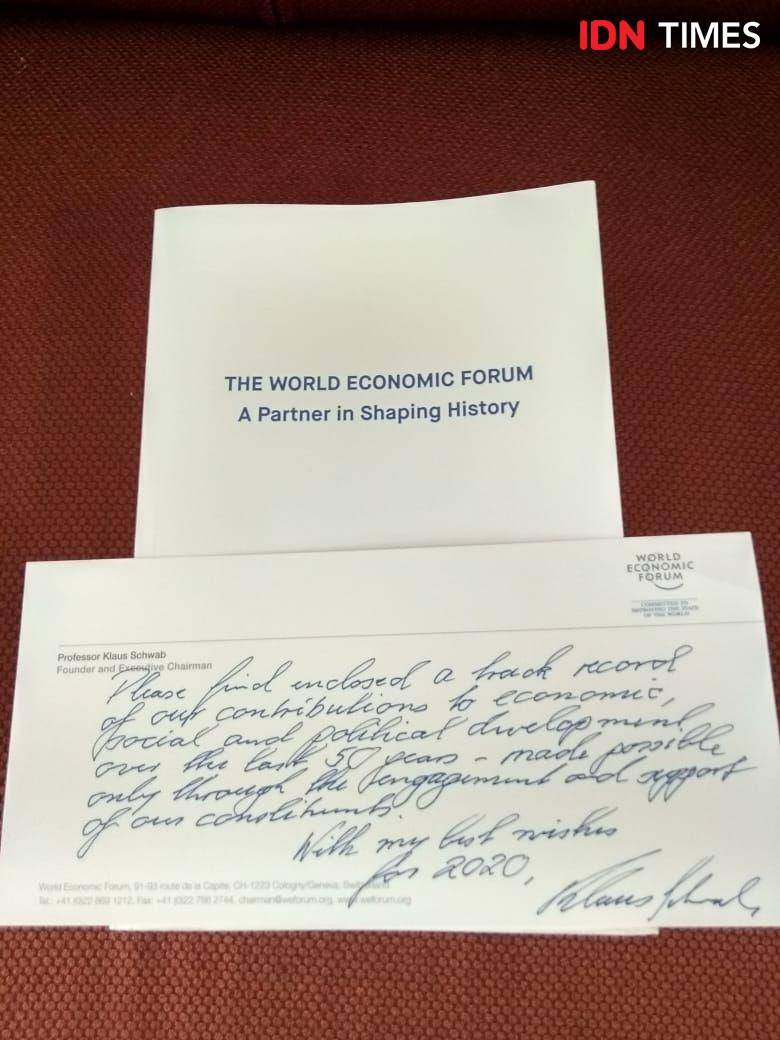 IDN TIMES
THE WORLD ECONOMIC FORUM
A Partner in Shaping History
WORLD
ECONOMIC
FORUM
COMMITTED TO
IMPROVING THE STATE
OF THE WORLD
Professor Klaus Schwab
Founder and Executive Chairman
Please find enclosed a track record
of our contributions to economic,
social and political development
over the last 50 years - made possible
only through the engagement and support
of our constituents.
With my best wishes
for 2020,
Klaus Schwab
World Economic Forum, 91-93 route de la Capite, CH-1223 Cologny/Geneva, Switzerland
Tel.: +41 (0)22 869 1212, Fax: +41 (0)22 786 2744, chairman@weforum.org, www.weforum.org